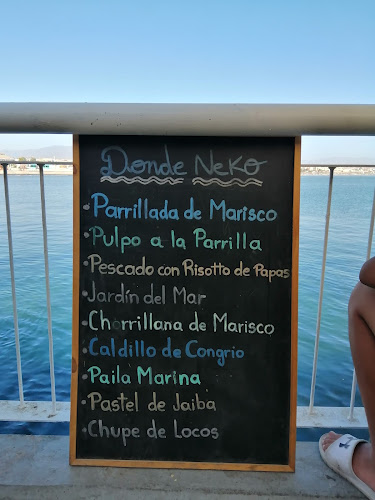 Donde Neko
Parrillada de Marisco
Pulpo a la Parrilla
Pescado con Risotto de Papas
Jardín del Mar
Chorrillana de Marisco
Caldillo de Congrio
Paila Marina
Pastel de Jaiba
Chupe de Locos